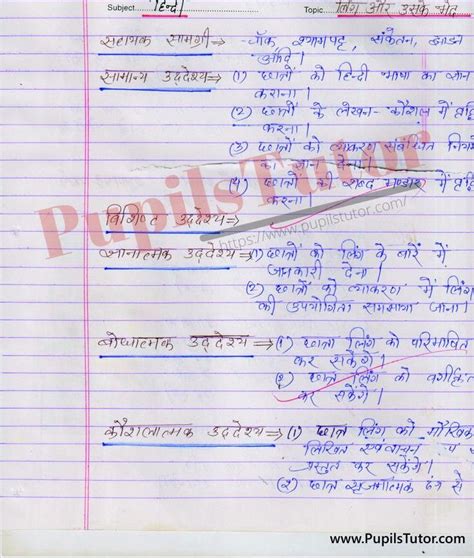 Subject हिन्दी Topic लिंग और उसके भेद
सहायक सामग्री ⇒ चॉक श्यामपट्ट, संकेतन, झाडन
आदि।
सामान्य उद्देश्य ⇒ (1) छात्रों को हिन्दी भाषा का ज्ञान
कराना।
(2) छात्रों के लेखन-कौशल में वृद्धि
करना।
(3) छात्रों को व्याकरण संबंधित नियमों
का ज्ञान देना।
(4) छात्रों की शब्द भण्डार में वृद्धि
करना।
PupilsTutor
https://www.pupilstutor.com/
विशिष्ट उद्देश्य ⇒
ज्ञानात्मक उद्देश्य ⇒ (1) छात्रों को लिंग के बारें में
जानकारी देना।
(2) छात्रों को व्याकरण में लिंग
की उपयोगिता समझाया जाना।
बोधात्मक उद्देश्य ⇒ (1) छात्र लिंग को परिभाषित
कर सकेंगे।
(2) छात्र लिंग को वर्गीकृत
कर सकेंगे।
कौशलात्मक उद्देश्य ⇒ (1) छात्र लिंग को मौखिक
लिखित
प्रस्तुत कर सकेंगे।
(2) छात्र सृजनात्मक ढंग से
www.PupilsTutor.Com